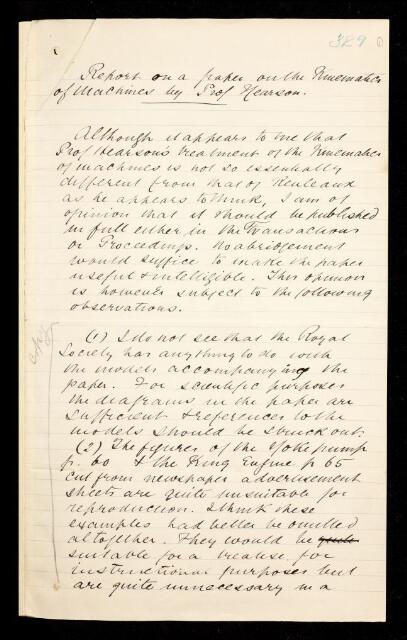 329
Report on a paper on the Kinematics
of Machines by Prof Hearson.
Although it appears to me that
Prof Hearson's treatment of the Kinematics
of machines is not so essentially
different from that of Reuleaux
as he appears to think, I am of
opinion that it should be published
in full either in the Transactions
or Proceedings. No abridgement
would suffice to make the paper
useful & intelligible. This opinion
is however subject to the following
observations.
(1) I do not see that the Royal
Society has anything to do with
the models accompanying the
paper. For scientific purposes
the diagrams in the paper are
sufficient & references to the
models should be struck out.
(2) The figures of the Yoke pump
p. 60 & the King Engine p 65
cut from newspaper advertisement
sheets are quite unsuitable for
reproduction. I think these
examples had better be omitted
altogether. They would be quite
suitable for a treatise for
instructional purposes but
are quite unnecessary in a